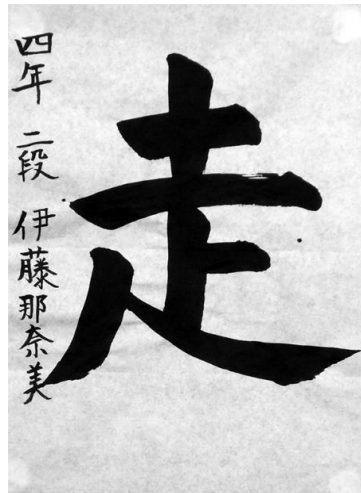 走
四年 二段 伊藤那奈美